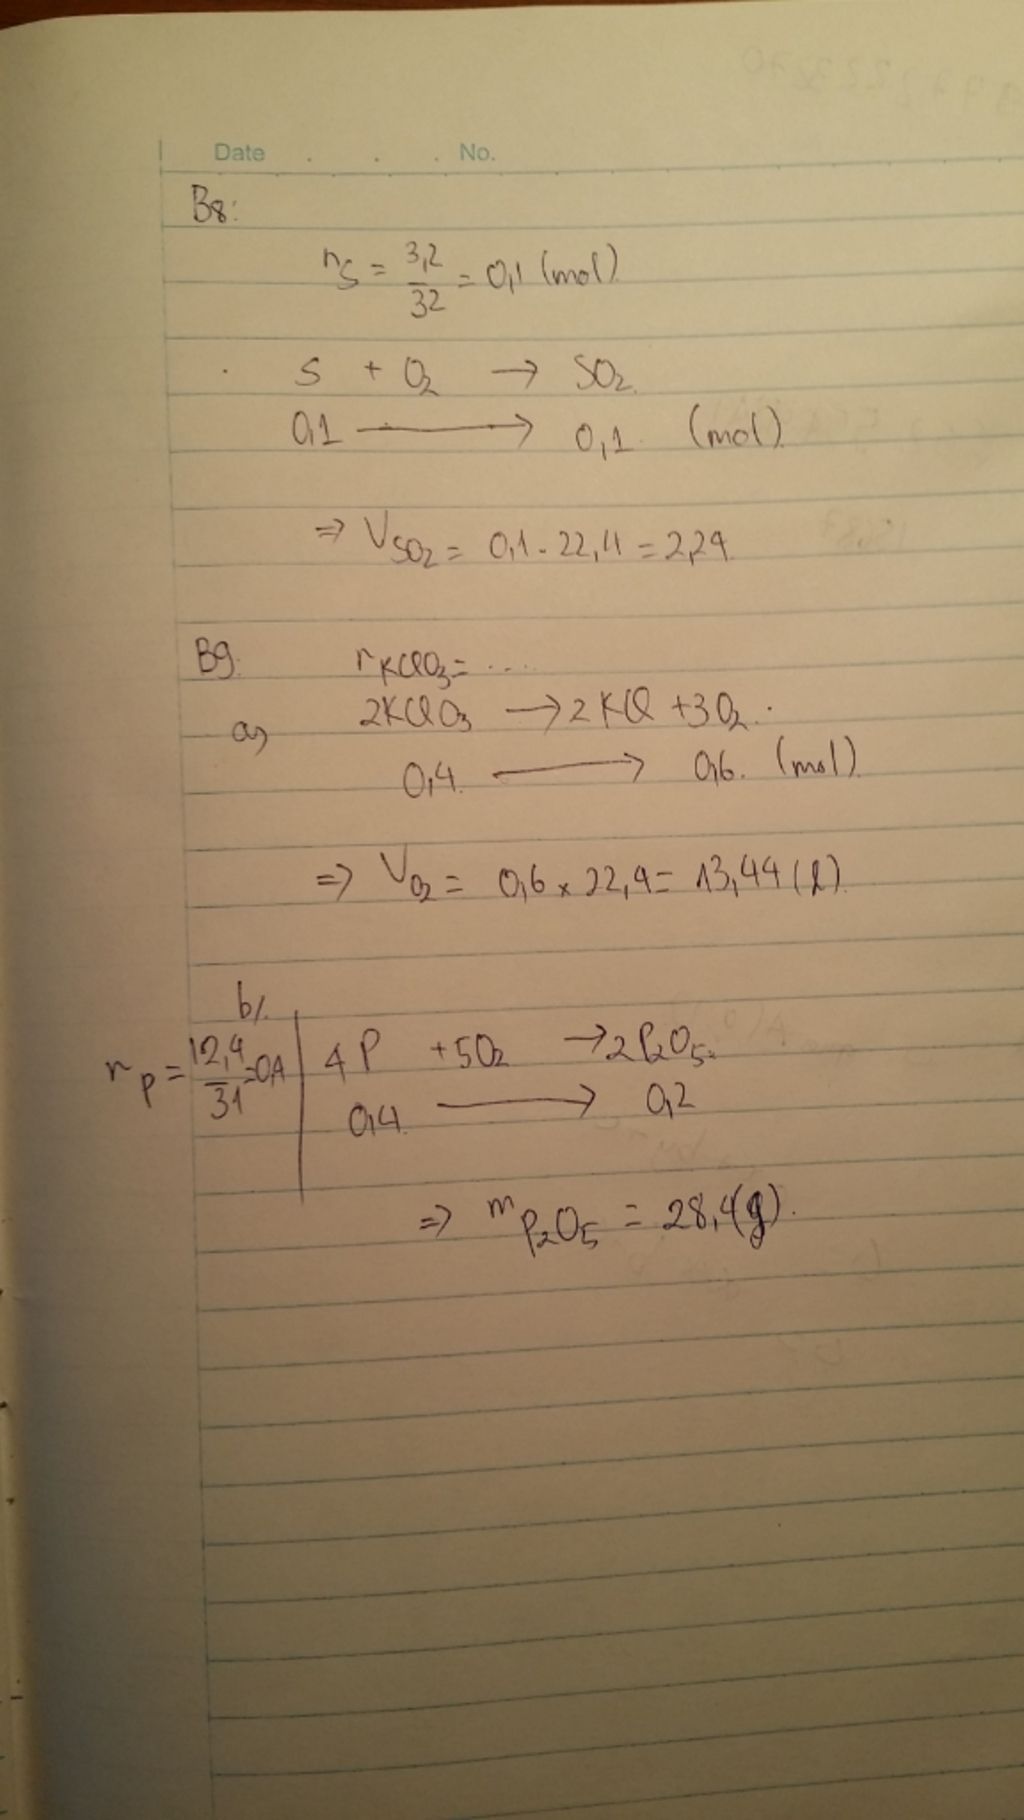 Date . . . No.
B8:
nS = 3,2/32 = 0,1 (mol)
S + O2 → SO2
0,1 → 0,1 (mol)
⇒ VSO2 = 0,1 . 22,4 = 2,24
B9.
nKClO3 = ....
a) 2KClO3 → 2KCl + 3O2.
0,4 → 0,6. (mol)
⇒ VO2 = 0,6 × 22,4 = 13,44 (l)
b/.
nP = 12,4/31 = 0,4 | 4P + 5O2 → 2P2O5.
0,4 → 0,2
⇒ mP2O5 = 28,4(g).